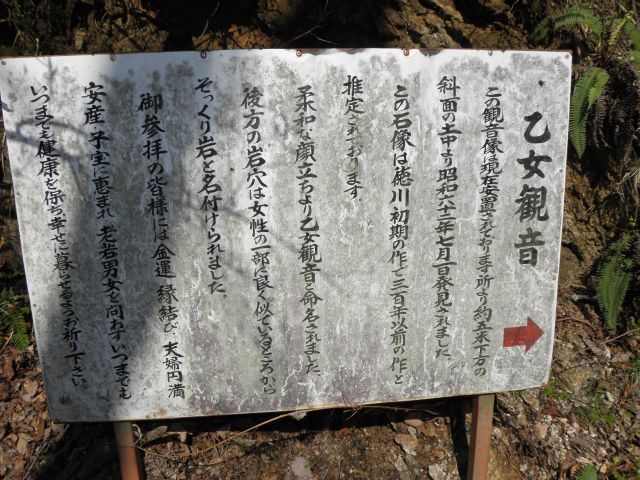 乙女観音
この観音像は現在安置されております所より約五米下方の
斜面の土中より昭和六十二年七月一日発見されました。
この石像は徳川初期の作で三百年以前の作と
推定されております。
柔和な顔立ちより乙女観音と命名されました。
後方の岩穴は女性の一部に良く似ているところから
そっくり岩と名付けられました。
御参拝の皆様には金運 縁結び 夫婦円満
安産・子宝に恵まれ 老若男女を問わずいつまでも
いつまでも健康を保ち幸せに暮らせるようお祈り下さい。